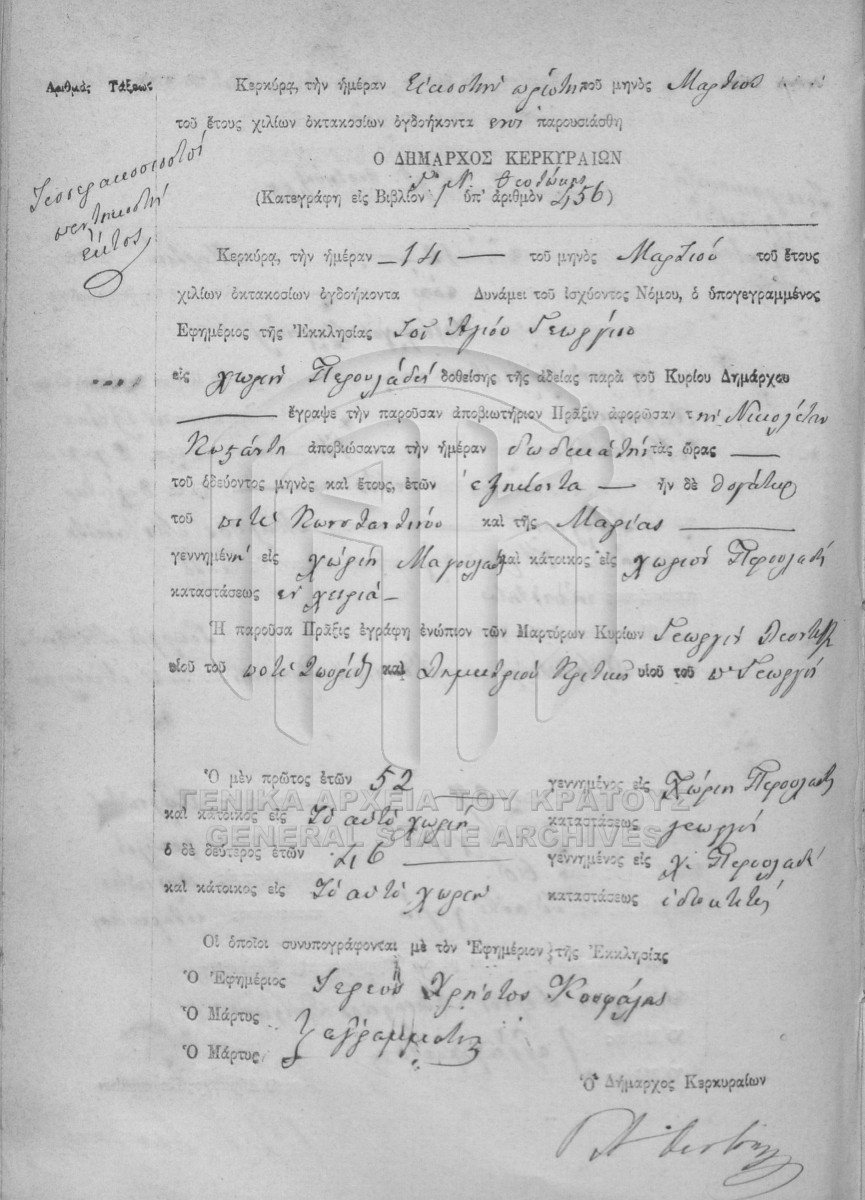 Ἀριθμὸς Τάξεως
Τεσσερακοσιοστὴ
πεντηκοστὴ
ἕκτος
Κερκύρᾳ, τὴν ἡμέραν Εἰκοστὴν πρώτην τοῦ μηνὸς Μαρτίου
τοῦ ἔτους χιλίων ὀκτακοσίων ὀγδοήκοντα ἑνὸς παρουσιάσθη
Ὁ ΔΗΜΑΡΧΟΣ ΚΕΡΚΥΡΑΙΩΝ
Ν. Θεοτόκης
(Κατεγράφη εἰς Βιβλίον ὑπ' ἀριθμὸν 456)
Κερκύρᾳ, τὴν ἡμέραν 14 τοῦ μηνὸς Μαρτίου τοῦ ἔτους
χιλίων ὀκτακοσίων ὀγδοήκοντα Δυνάμει τοῦ ἰσχύοντος Νόμου, ὁ ὑπογεγραμμένος
Ἐφημέριος τῆς Ἐκκλησίας Τοῦ Ἁγίου Γεωργίου
εἰς χωρίον Περουλάδες δοθείσης τῆς ἀδείας παρὰ τοῦ Κυρίου Δημάρχου
ἔγραψε τὴν παροῦσαν ἀποβιωτήριον Πρᾶξιν ἀφορῶσαν τὴν Νικολέταν
ἀποβιώσαντα τὴν ἡμέραν δωδεκάτην τὰς ὥρας
τοῦ ὁδεύοντος μηνὸς καὶ ἔτους, ἐτῶν ἑξήκοντα ἦν δὲ θυγάτηρ
τοῦ ποτὲ Κωνσταντίνου καὶ τῆς Μαρίας
γεννημένη εἰς χωρίον Μαγουλάδες καὶ κάτοικος εἰς χωρίον Περουλάδες
καταστάσεως
Ἡ παροῦσα Πρᾶξις ἐγράφη ἐνώπιον τῶν Μαρτύρων Κυρίων Γεωργίου
υἱοῦ τοῦ ποτὲ Σπυρίδ. καὶ Δημητρίου Κρητικοῦ υἱοῦ τοῦ π. Γεωργίου
Ὁ μὲν πρῶτος ἐτῶν 52 γεννημένος εἰς Χωρίον Περουλάδες
καὶ κάτοικος εἰς Τὸ αὐτὸ χωρίον καταστάσεως γεωργὸς
ὁ δὲ δεύτερος ἐτῶν 46 γεννημένος εἰς χ. Περουλάδες
καὶ κάτοικος εἰς Τὸ αὐτὸ χωρίον καταστάσεως
Οἱ ὁποῖοι συνυπογράφονται μὲ τὸν Ἐφημέριον τῆς Ἐκκλησίας
Ὁ Ἐφημέριος Ἱερεὺς Χρῆστος
Ὁ Μάρτυς ἀγράμματοι
Ὁ Μάρτυς
Ὁ Δήμαρχος Κερκυραίων
ΓΕΝΙΚΑ ΑΡΧΕΙΑ ΤΟΥ ΚΡΑΤΟΥΣ
GENERAL STATE ARCHIVES